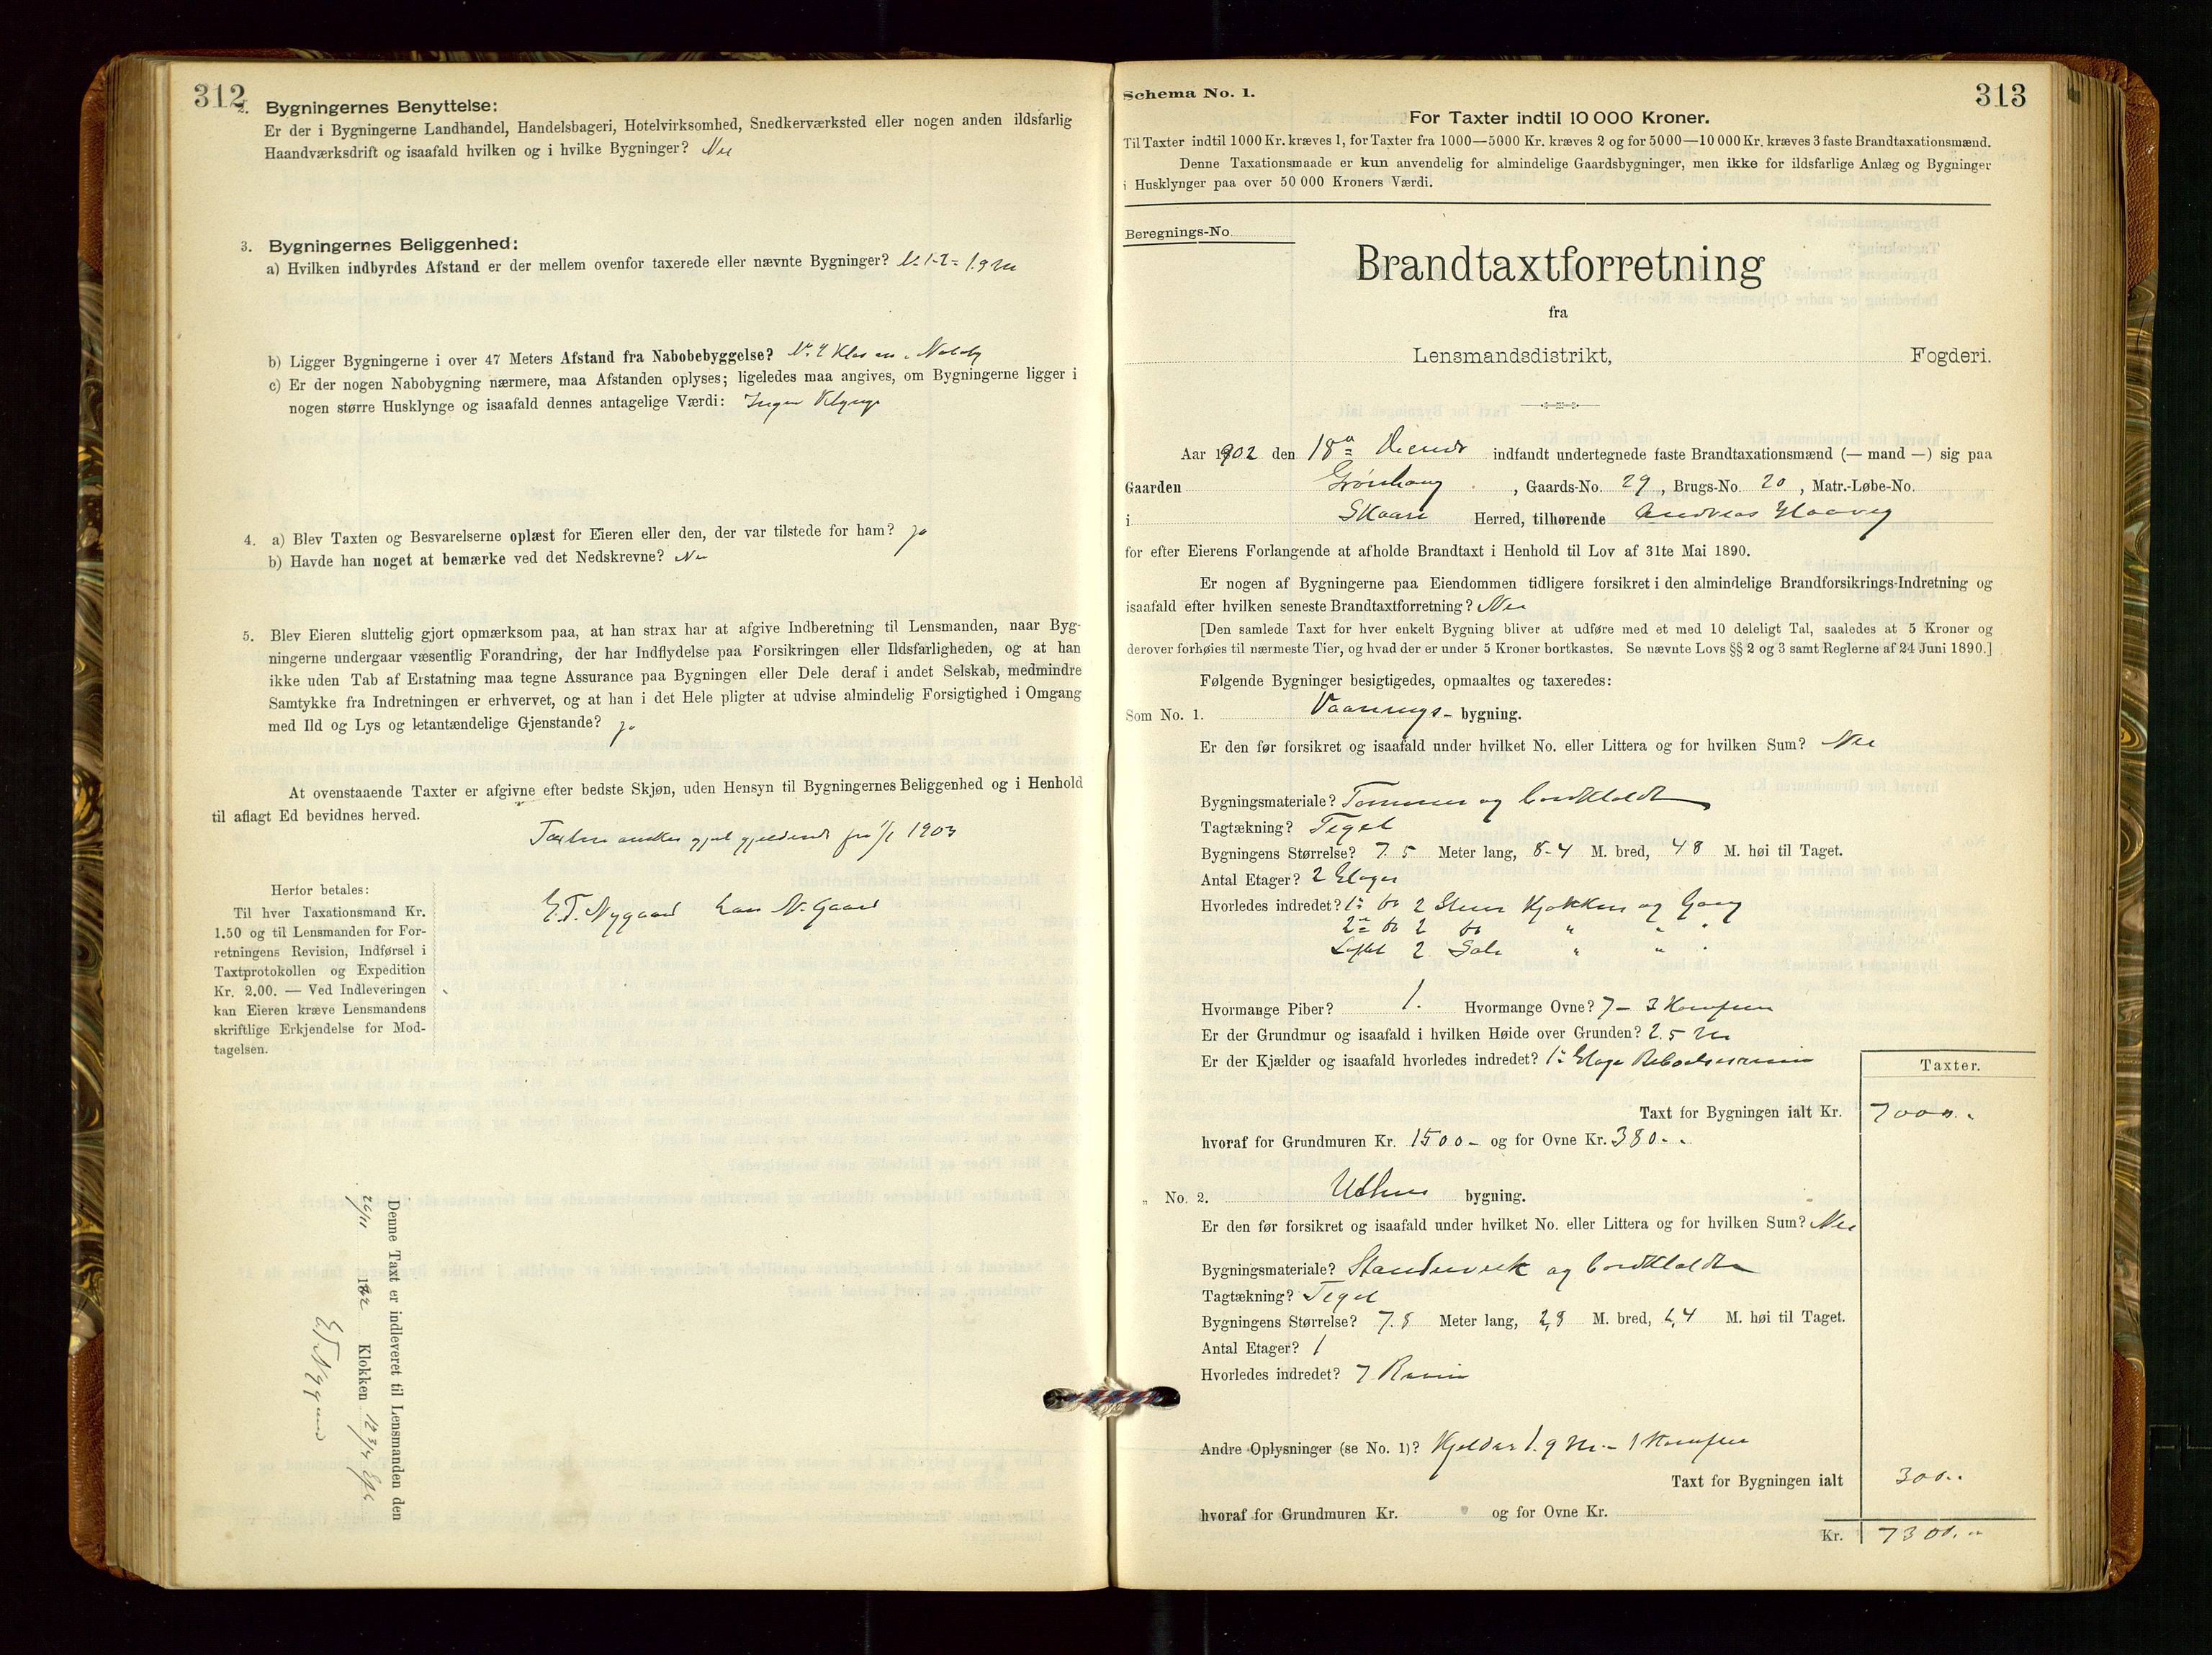 312
2. Bygningernes Benyttelse:
Er der i Bygningerne Landhandel, Handelsbageri, Hotelvirksomhed, Snedkerværksted eller nogen anden ildsfarlig
Haandværksdrift og isaafald hvilken og i hvilke Bygninger? Nei
3. Bygningernes Beliggenhed:
a) Hvilken indbyrdes Afstand er der mellem ovenfor taxerede eller nævnte Bygninger? N. 1-2 = 1.9 M
b) Ligger Bygningerne i over 47 Meters Afstand fra Nabobebyggelse?
c) Er der nogen Nabobygning nærmere, maa Afstanden oplyses; ligeledes maa angives, om Bygningerne ligger i
nogen større Husklynge og isaafald dennes antagelige Værdi: Ingen Klynge
4. a) Blev Taxten og Besvarelserne oplæst for Eieren eller den, der var tilstede for ham? Ja
b) Havde han noget at bemærke ved det Nedskrevne? Nei
5. Blev Eieren sluttelig gjort opmærksom paa, at han strax har at afgive Indberetning til Lensmanden, naar Byg-
ningerne undergaar væsentlig Forandring, der har Indflydelse paa Forsikringen eller Ildsfarligheden, og at han
ikke uden Tab af Erstatning maa tegne Assurance paa Bygningen eller Dele deraf i andet Selskab, medmindre
Samtykke fra Indretningen er erhvervet, og at han i det Hele pligter at udvise almindelig Forsigtighed i Omgang
med Ild og Lys og letantændelige Gjenstande? Ja
At ovenstaaende Taxter er afgivne efter bedste Skjøn, uden Hensyn til Bygningernes Beliggenhed og i Henhold
til aflagt Ed bevidnes herved.
Taxten ønskes gjort gjældende fra 1/1 1903
E. T. Nygaard Lars N. Gaard
Herfor betales:
Til hver Taxationsmand Kr.
1.50 og til Lensmanden for For-
retningens Revision, Indførsel i
Taxtprotokollen og Expedition
Kr. 2.00. — Ved Indleveringen
kan Eieren kræve Lensmandens
skriftlige Erkjendelse for Mod-
tagelsen.
Denne Taxt er indleveret til Lensmanden den
Klokken 12 3/4
E T Nygaard
313
Schema No. 1.
For Taxter indtil 10 000 Kroner.
Til Taxter indtil 1000 Kr. kræves 1, for Taxter fra 1000—5000 Kr. kræves 2 og for 5000—10 000 Kr. kræves 3 faste Brandtaxationsmænd.
Denne Taxationsmaade er kun anvendelig for almindelige Gaardsbygninger, men ikke for ildsfarlige Anlæg og Bygninger
i Husklynger paa over 50 000 Kroners Værdi.
Beregnings-No.
Brandtaxtforretning
fra
Lensmandsdistrikt, Fogderi.
Aar 1902 den 18de indfandt undertegnede faste Brandtaxationsmænd (— mand —) sig paa
Gaarden Grønhaug, Gaards-No. 29, Brugs-No. 20, Matr.-Løbe-No.
i Skaare Herred, tilhørende Andreas Haavig
for efter Eierens Forlangende at afholde Brandtaxt i Henhold til Lov af 31te Mai 1890.
Er nogen af Bygningerne paa Eiendommen tidligere forsikret i den almindelige Brandforsikrings-Indretning og
isaafald efter hvilken seneste Brandtaxtforretning? Nei
[Den samlede Taxt for hver enkelt Bygning bliver at udføre med et med 10 deleligt Tal, saaledes at 5 Kroner og
derover forhøies til nærmeste Tier, og hvad der er under 5 Kroner bortkastes. Se nævnte Lovs §§ 2 og 3 samt Reglerne af 24 Juni 1890.]
Følgende Bygninger besigtigedes, opmaaltes og taxeredes:
Som No. 1. Vaanings- bygning.
Er den før forsikret og isaafald under hvilket No. eller Littera og for hvilken Sum? Nei
Bygningsmateriale? Tømmer og bordklædt
Tagtækning? Tegel
Bygningens Størrelse? 7.5 Meter lang, 8-4 M. bred, 4 8 M. høi til Taget.
Antal Etager? 2 Etager
Hvorledes indredet? 1ste Do 2 Stuer Kjøkken og Gang
2den Do 2 Do " " "
Loftet 2 Sale " " "
Hvormange Piber? 1. Hvormange Ovne? 7 - 3 Komfurer
Er der Grundmur og isaafald i hvilken Høide over Grunden? 2.5 M
Er der Kjælder og isaafald hvorledes indredet? 1ste Etage
Taxter.
Taxt for Bygningen ialt Kr. 7000 . "
hvoraf for Grundmuren Kr. 1500 - og for Ovne Kr. 380 - "
" No. 2. Udhus bygning.
Er den før forsikret og isaafald under hvilket No. eller Littera og for hvilken Sum? Nei
Bygningsmateriale? Standerverk og bordklædt
Tagtækning? Tegel
Bygningens Størrelse? 7.8 Meter lang, 2,8 M. bred, 2,4 M. høi til Taget.
Antal Etager? 1
Hvorledes indredet? 7 Rum
Andre Oplysninger (se No. 1)? Kjelder 1.9 M. - 1 Komfur
Taxt for Bygningen ialt 300 . "
hvoraf for Grundmuren Kr. og for Ovne Kr.
Kr. 7300 . "